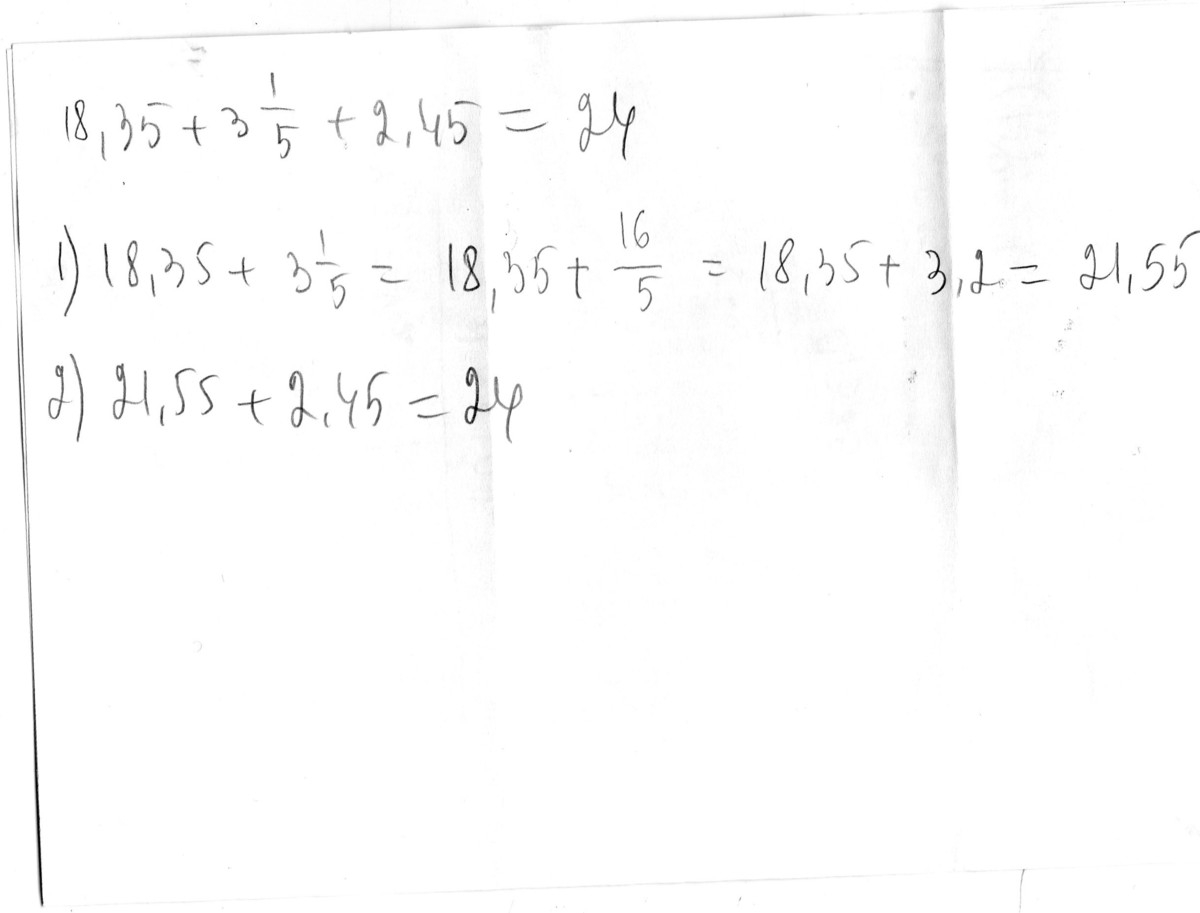 18,35 + 3 1/5 + 2,45 = 24
1) 18,35 + 3 1/5 = 18,35 + 16/5 = 18,35 + 3,2 = 21,55
2) 21,55 + 2,45 = 24